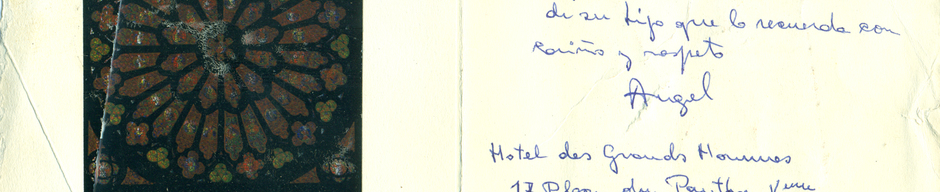 de su hijo que lo recuerda con
cariño y respeto
Angel
Hotel des Grands Hommes
17 Place du Panthéon